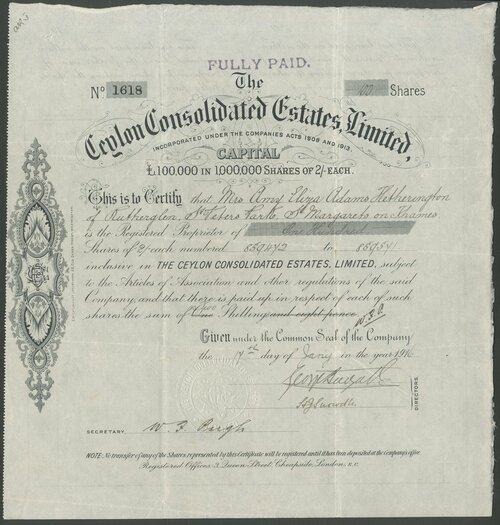 FULLY PAID.
The
No 1618
100 Shares
Ceylon Consolidated Estates, Limited
INCORPORATED UNDER THE COMPANIES ACTS 1908 AND 1913.
CAPITAL
£100,000 IN 1,000,000 SHARES OF 2/- EACH.
This is to Certify that Mrs Amy Eliza Adams Hetherington
of Rutherglen, St Peters Park, St Margarets on Thames
is the Registered Proprietor of One Hundred
Shares of 2/- each numbered 859442 to 859541
inclusive in THE CEYLON CONSOLIDATED ESTATES, LIMITED, subject
to the Articles of Association and other regulations of the said
Company, and that there is paid up in respect of each of such
shares the sum of Shilling and eight pence
Given under the Common Seal of the Company
the 17th day of Jany in the year 1916
DIRECTORS.
SECRETARY, W. F. Pugh
NOTE: No transfer of any of the Shares represented by this Certificate will be registered until it has been deposited at the Company's office.
Registered Offices: 3, Queen Street, Cheapside, London, E.C.